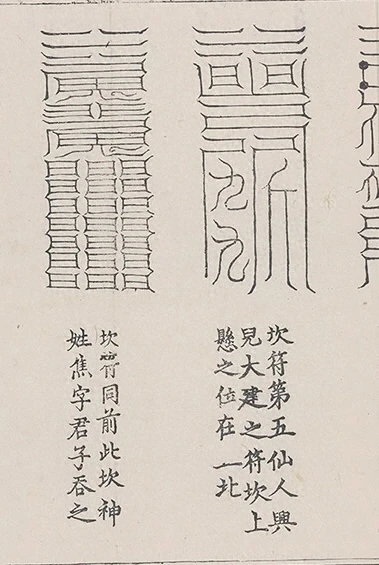 坎符第五仙人興
兒大建之符坎上
懸之位在一北
坎符同前此坎神
姓焦字君子吞之